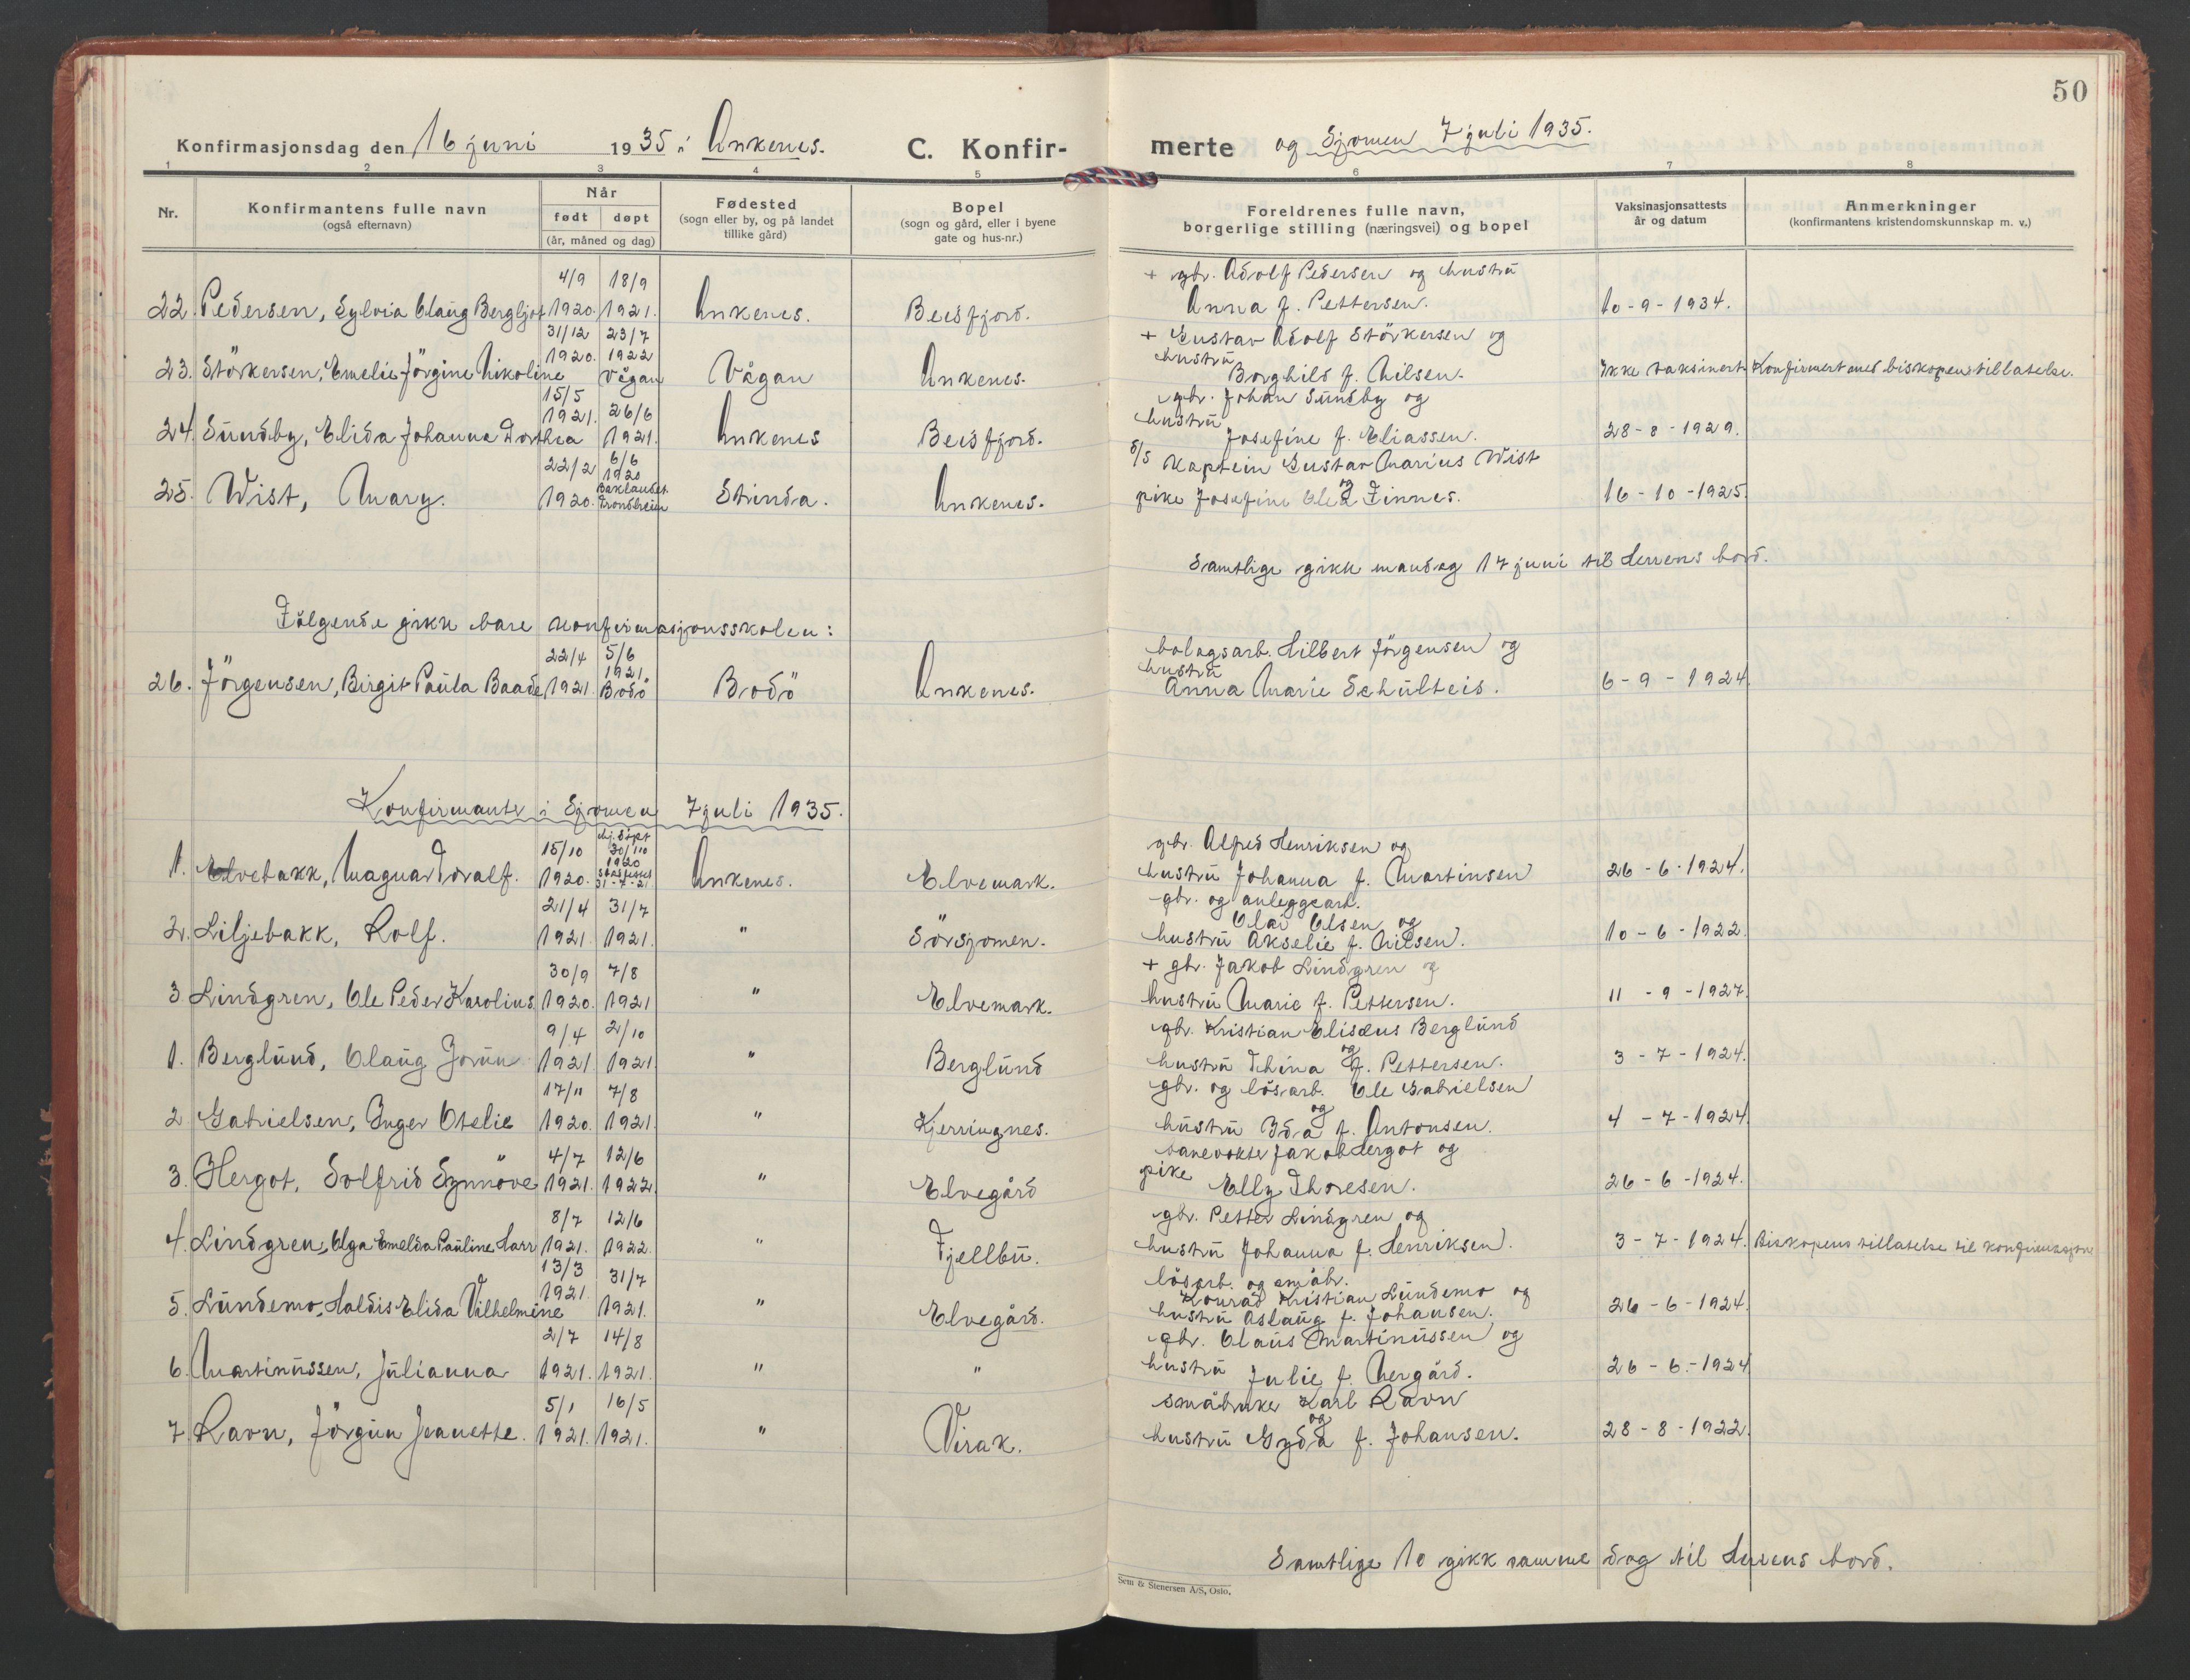 50
Konfirmasjonsdag den 16 juni 1935 i Ankenes. C. Konfir-
merte og Sjomen 7 juli 1935.
1 2 3 4 5 6 7 8
Nr.
Konfirmantens fulle navn
(også efternavn)
Når
født døpt
(år, måned og dag)
Fødested
(sogn eller by, og på landet
tillike gård)
Bopel
(sogn og gård, eller i byene
gate og hus-nr.)
Foreldrenes fulle navn,
borgerlige stilling (næringsvei) og bopel
Vaksinasjonsattests
år og datum
Anmerkninger
(konfirmantens kristendomskunnskap m. v.)
4/9 18/9 + gbr. Adolf Pedersen og hustru
22. Pedersen, Sylvia Olaug Bergljot 1920. 1921. Ankenes. Beisfjord. Anna f. Pettersen. 10-9-1934.
31/12 23/7 + Gustav Adolf Störkersen og
23. Störkersen, Emelie Jörgine Nikoline 1920. 1922 Vågan Vågan Ankenes. hustru Borghild f. Nilsen. Ikke vaksinert Konfirmert med biskopens tillatelse.
15/5 gbr. Johan Sundby og
24. Sundby, Elida Johanna Dorthea 1921. 26/6 1921. Ankenes Beisfjord. hustru Josefine f. Eliassen. 28-8-1929.
22/2 6/6 1920 Kaptein Gustav Marius Wist
25. Wist, Mary. 1920. Baklandet Trondheim Strinda. Ankenes. og pike Josefine Olea Finnes. 16-10-1925.
Samtlige gikk mandag 17 juni til Herrens bord.
Fölgende gikk bare konfirmasjonsskolen:
22/4 5/6 bolagsarb. Hilbert Jörgensen og
26. Jörgensen, Birgit Paula Baade 1921. 1921. Bodö Bodö Ankenes. hustru Anna Marie Schulteis. 6-9-1924.
Konfirmanter i Sjomen 7 juli 1935.
15/10 hj. döpt 30/10 1920 gbr. Alfred Henriksen og
1. Elvebakk, Magnar Toralf. 1920. stadfestet 31-7-21 Ankenes. Elvemark. hustru Johanna f. Martinsen 26-6-1924.
21/4 31/7 gbr. og anleggsarb. Olai Olsen og
2. Liljebakk, Rolf. 1921. 1921. " Sörsjomen. hustru Akselie f. Nilsen. 10-6-1922.
30/9 7/8 + gbr. Jakob Lindgren og
3 Lindgren, Ole Peder Karolius 1920. 1921 " Elvemark. hustru Marie f. Pettersen. 11-9-1927.
9/4 2/10 gbr. Kristian Elisæus Berglund
1. Berglund, Olaug Jorun 1921. 1921. " Berglund og hustru Thina f. Pettersen. 3-7-1924.
17/11 7/8 gbr. og lösarb. Ole Gabrielsen
2 Gabrielsen, Inger Otelie 1920. 1921. " Kjerringnes. og hustru Ida f. Antonsen. 4-7-1924
4/7 12/6 banevokter Jakob Hergot og
3. Hergot, Solfrid Synnöve 1921. 1922. " Elvegård pike Elly Thoresen. 26-6-1924.
8/7 12/6 gbr. Petter Lindgren og
4. Lindgren, Olga Emelda Pauline Harr 1921. 1922. " Fjellbu. hustru Johanna f. Henriksen. 3-7-1924. Biskopens tillatelse til konfirmasjon
13/3 31/7 lösarb. og småbr. Konrad Kristian Lundemo og
5. Lundemo, Haldis Elida Vilhelmine 1921. 1921. " Elvegård. hustru Aslaug f. Johansen. 26-6-1924.
2/7 14/8 gbr. Olaus Martinussen og
6. Martinussen, Julianna 1921. 1921. " " hustru Julie f. Nergård. 26-6-1924
5/1 16/5 småbruker Karl Ravn
7. Ravn, Jörgun Jeanette. 1921. 1921. " Virak. og hustru Gyda f. Johansen. 28-8-1922.
Samtlige 10 gikk samme dag til Herrens bord.
Sem & Stenersen A/S, Oslo.